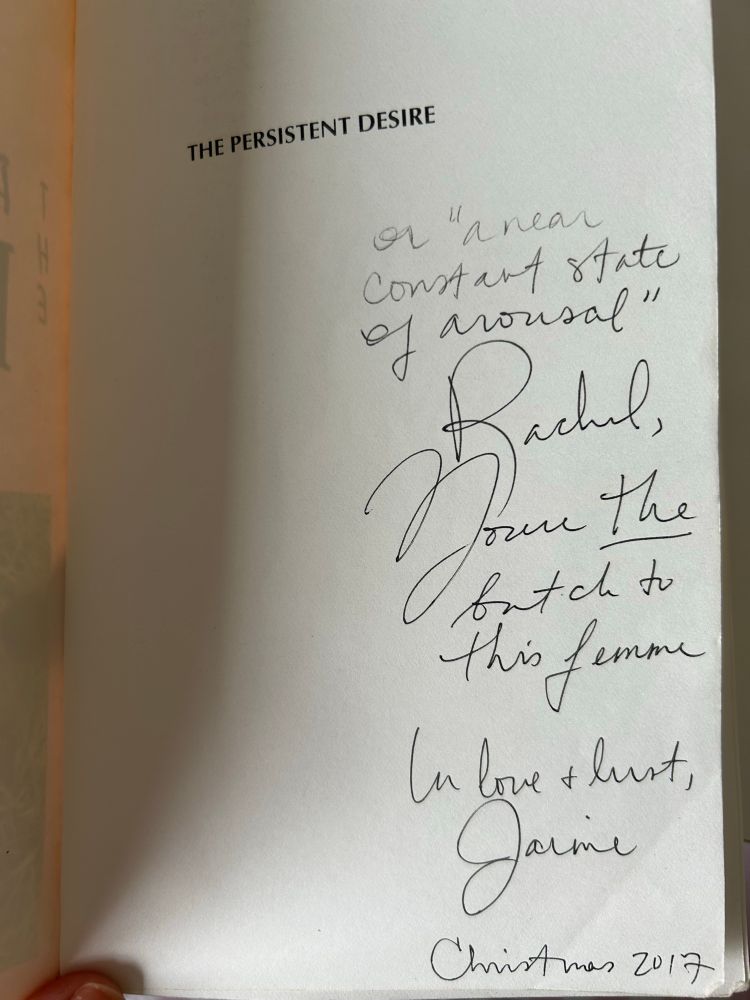 THE PERSISTENT DESIRE
or "a near
constant state
of arousal"
Rachel,
Youre the
butch to
this femme
In love + lust,
Jaime
Christmas 2017
T
H
E